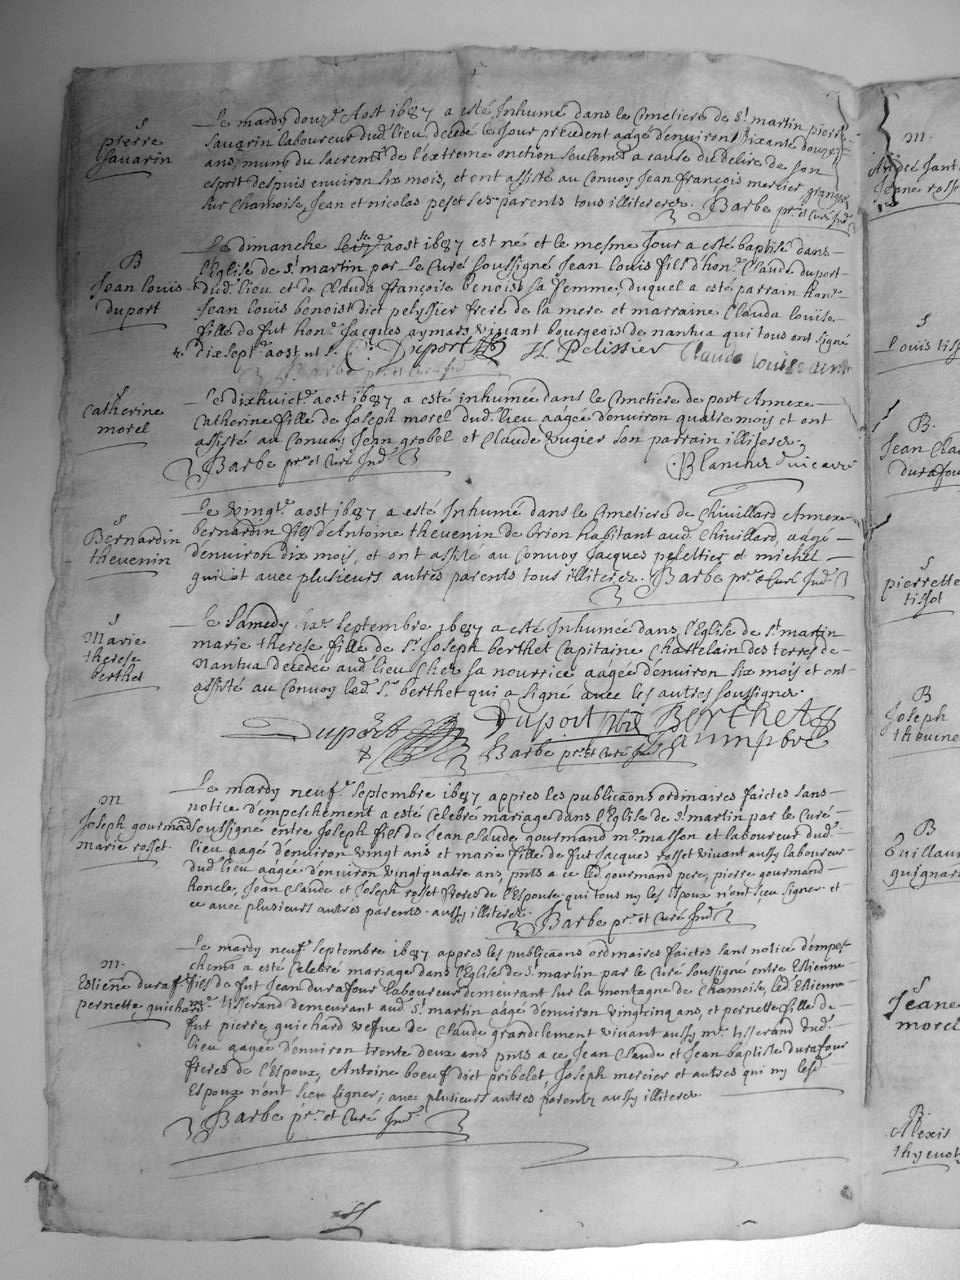 S
pierre
sauarin
Le mardy douz.e Aost 1687 a esté Inhumé dans le Cimetiere de S.t martin pierre
Sauarin laboureur dud. lieu decedé le Jour precedent aagé denuiron soixante douze
ans, muny du sacrem.t de l'extreme onction seulem.t a cause du delire de son
esprit despuis enuiron six mois, et ont assisté au Conuoy Jean françois mercier granger
sur Chamoise, Jean et nicolas peset ses parents tous illiterez. Barbe p.r et Curé Ind.e
B
Jean louis
duport
Le dimanche aost 1687 est né et le mesme Jour a esté baptisé dans
l'Eglise de S.t martin par le Curé soussigné Jean louis fils d'hon.e Claude duport
dud. lieu et de Clauda françoise benoist sa femme, duquel a esté parrain hon.e
Jean louis benoist dict pelyssier frere de la mere et marraine Clauda louise
fille de fut hon.e Jacques aymard viuant bourgeois de nantua qui tous ont signé
dixsept.e aost ut s. Duport Pelissier Claude louise
Barbe pr et Curé Ind
S
Catherine
morel
Le dixhuict.e aost 1687 a esté inhumée dans le Cimetiere de port Annexe
Catherine fille de Joseph morel dud. lieu aagée d'enuiron quatre mois et ont
assisté au Conuoy Jean grobel et Claude Vugier son parrain illiterez.
Barbe pr. et Curé Ind.e Blanchet Vicaire
S
Bernardin
theuenin
Le vingt.e aost 1687 a esté Inhumé dans le Cimetiere de Chiuillard Annexe
bernardin fils d'Antoine theuenin de brion habitant aud. Chiuillard, aagé
d'enuiron dix mois, et ont assisté au Conuoy Jacques peleltier et michel
guillot avec plusieurs autres parents tous illiterez. Barbe pr. et Curé Ind.e
S
Marie
therese
berthet
Le samedy septembre 1687 a esté Inhumée dans l'Eglise de S.t martin
marie therese fille de S.r Joseph berthet Capitaine Chastelain des terres de
Nantua decedée aud. lieu chez sa nourrice aagée d'enuiron six mois et ont
assisté au Conuoy led. S.r berthet qui a signé auec les autres soussignez.
Duport Duport Berthet
Barbe pr. et Curé Ind.e
m
Joseph gourmand
marie rosset
Le mardy neuf.e septembre 1687 appres les publicaons ordinaires faictes sans
notice d'empeschement a esté Celebré mariage dans l'Eglise de S.t martin par le Curé
soussigné entre Joseph fils de Jean Claude gourmand m.e masson et laboureur dud.
lieu aagé d'enuiron vingt ans et marie fille de fut Jacques rosset viuant aussy laboureur
dud. lieu aagée d'enuiron vingtquatre ans, pnts a ce led. gourmand pere, pierre gourmand
honcle, Jean Claude et Joseph rosset freres de l'Espouse qui tous ny les Espoux n'ont sceu signer et
ce avec plusieurs autres parents aussy illiterez. Barbe pr. et Curé Ind.e
m.
Estiene durafour
pernette quichard
Le mardy neuf septembre 1687 appres les publicaons ordinaires faictes sans notice d'empes-
chemt a esté Celebré mariage dans l'Eglise de S.t martin par le Curé soussigné entre Estienne
fils de fut Jean durafour laboureur demeurant sur la montagne de Chamoise, led. Estienne
m.e tisserand demeurant aud. S.t martin aagé d'enuiron vingtcinq ans, et pernette fille de
fut pierre quichard vefue de Claude grandclement viuant aussy m.e tisserand dud.
lieu aagée d'enuiron trente deux ans pnts a ce Jean Claude et Jean baptiste durafour
freres de l'Espoux, Antoine boeuf dict pribelet Joseph mercier et autres qui ny lesd.
Espoux n'ont sceu signer, avec plusieurs autres parents aussy illiterez
Barbe pr. et Curé Ind.e
m.
louis tiss
B.
Jean Clau
durafou
S
pierrette
tissot
B
Joseph
theuine
B
Guillau
guignar
S
Jeane
morel
B.
Alexis
thyenot